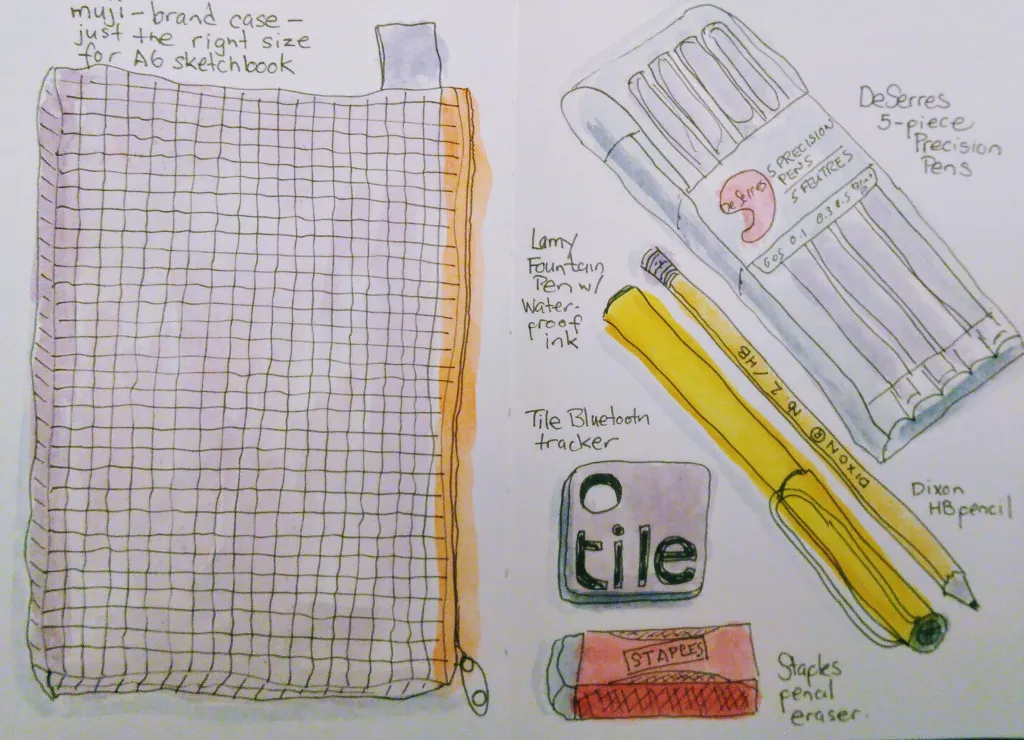 muji-brand case-
just the right size
for A6 sketchbook
DeSerres
5-piece
Precision
Pens
DeSerres
5 PRECISION
PENS
5 FEUTRES
0.05 0.1 0.3 0.5
Lamy
Fountain
Pen w/
Water-
proof
ink
No. 2/HB
DIXON®
Tile Bluetooth
tracker
tile
Dixon
HB pencil
STAPLES
Staples
pencil
eraser.